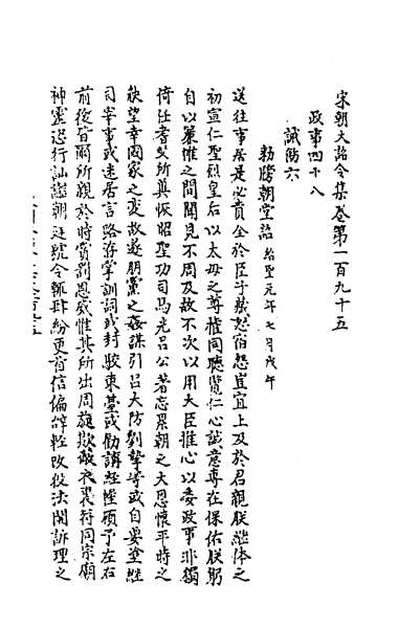 宋朝大詔令集卷第一百九十五
政事四十八
誡飭六
勑牓朝堂詔 紹聖元年七月戊午
送往事居是必責全於臣子藏怒宿怨豈宜上及於君親朕繼体之
初宣仁聖烈皇后以太母之尊權同聽覽仁心誠意專在保佑朕躬
自以簾帷之間聞見不周及故不次以用大臣推心以委政事非獨
倚任耆艾所冀恢昭聖功司馬光呂公著忘累朝之大恩懷平時之
觖望幸國家之變故遂朋黨之姦謀引呂大防劉摯等或自要塗繼
司宰事或迭居言路或掌訓詞或封駮東臺或勸講經幄顧予左右
前後皆爾所親於時賞罰恩威惟其所出周旋欺蔽表裏符同宗廟
神靈恣行訕謗朝廷號令輒肆紛更首信偏辞輕改役法開訴理之